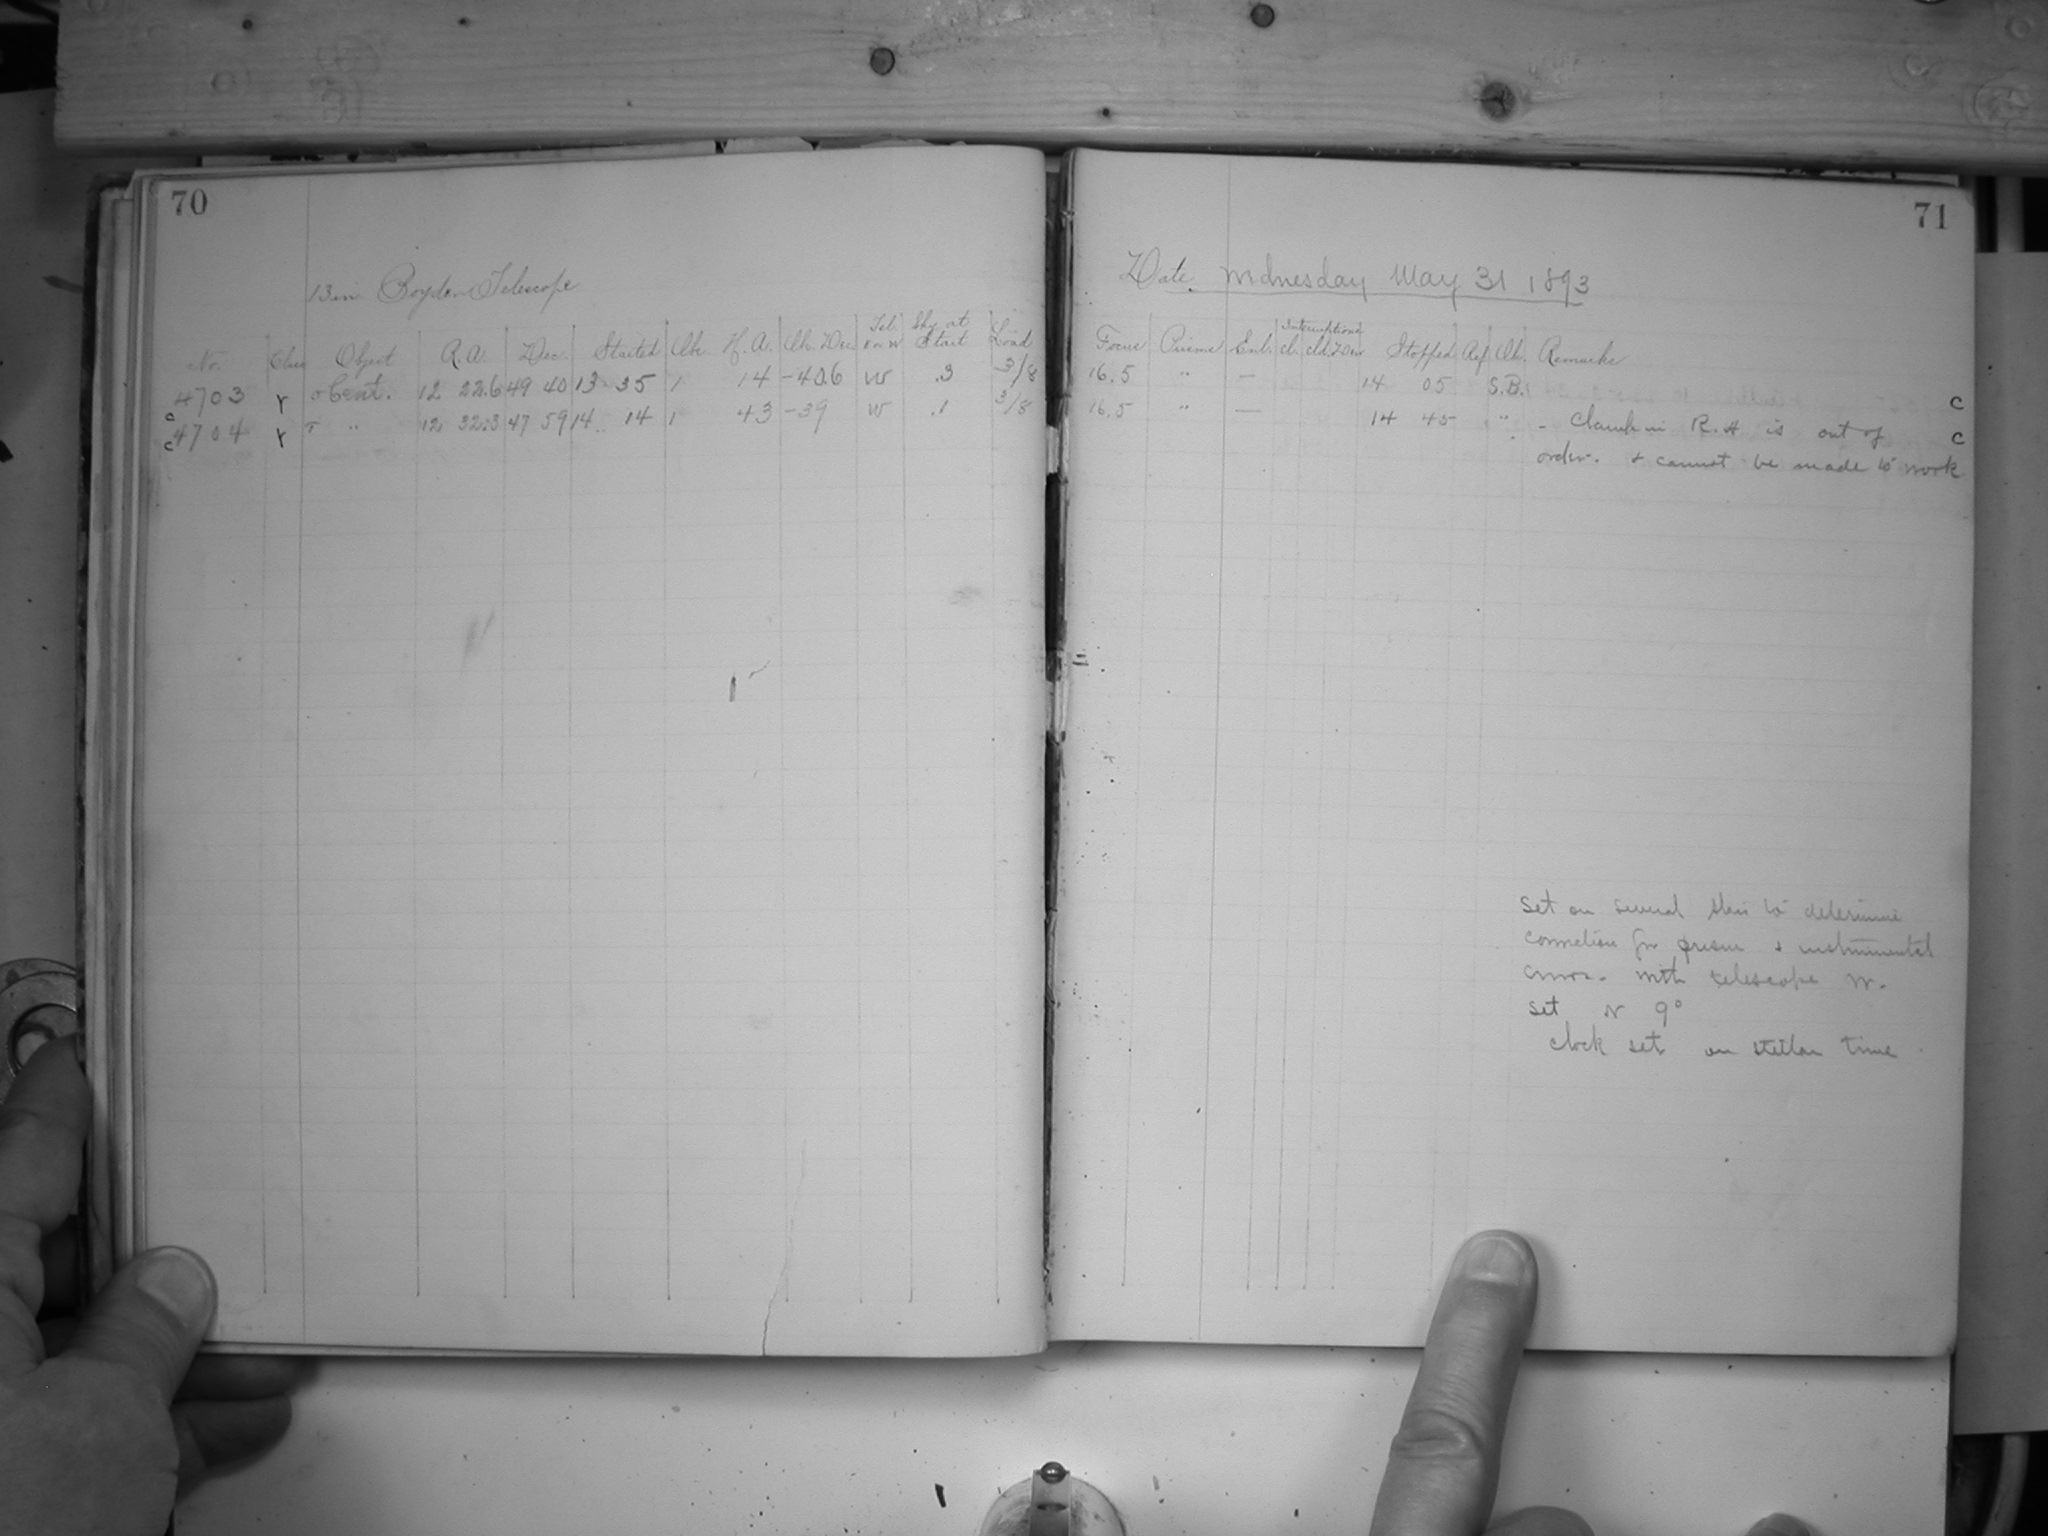 70
13 in. Boyden Telescope
No. Class Object R.A. Dec. Started Obs. H.A. Ob. Dec. Tel. E or W Sky at Start Load
4703 r σ Cent. 12 22.6 49 40 13 35 1 14 -40.6 W .3 3/8
c
4704 r τ " 12 32.3 47 59 14 14 1 43 -39 W .1 3/8
c
71
Date. Wednesday May 31 1893
Focus Prisms Enl. Interruptions cl. cld. Dew Stopped Aef Ob. Remarks
16.5 " — 14 05 S.B. c
16.5 " — 14 45 " - Clamp in R.A is out of c
order. + cannot be made to work
Set on several stars to determine
correction for prism + instrumental
error. with telescope W.
set N 9°
clock set on stellar time